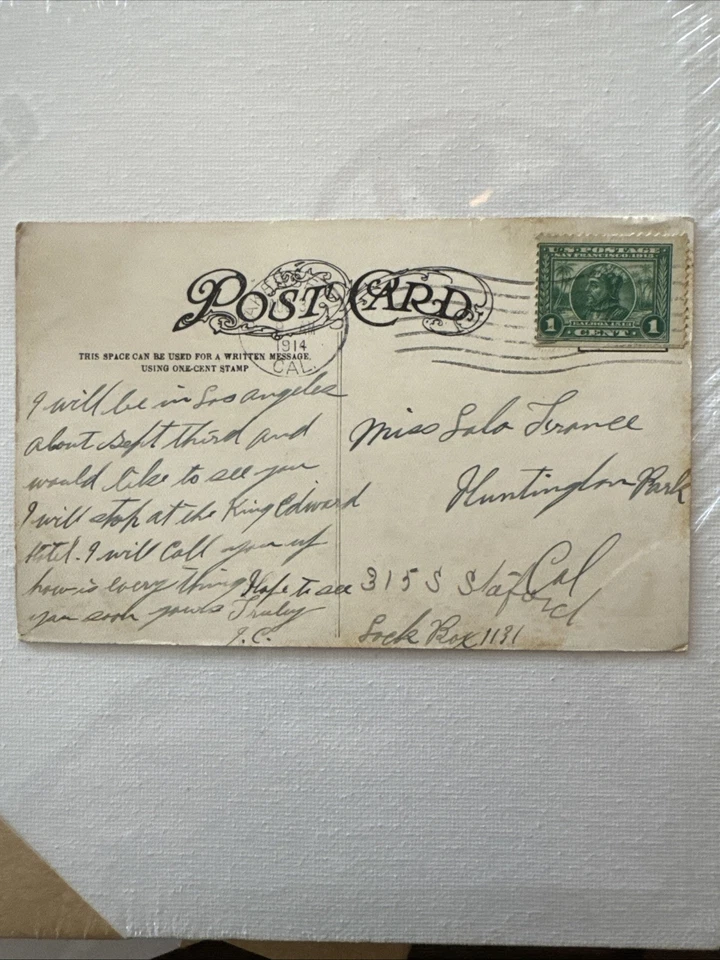 POST CARD
1914
CAL.
THIS SPACE CAN BE USED FOR A WRITTEN MESSAGE,
USING ONE-CENT STAMP
U.S. POSTAGE
SAN FRANCISCO 1915
BALBOA 1513
1 CENT 1
I will be in Los Angeles
about Sept third and
would like to see you
I will stop at the King Edward
Hotel. I will call you up
how is every thing Hope to see
you soon yours Truly
J.C.
Miss Lola France
Huntington Park
Cal
315 S Staford
Lock Box 1131